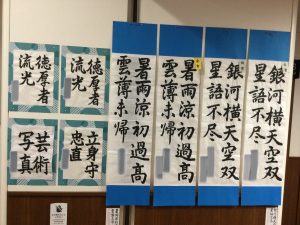 銀河横天空双
星語不尽
銀河横天空双
星語不尽
暑雨涼初過高
雲薄未帰
暑雨涼初過高
雲薄未帰
徳厚者
流光
徳厚者
流光
立身守
忠直
芸術
写真